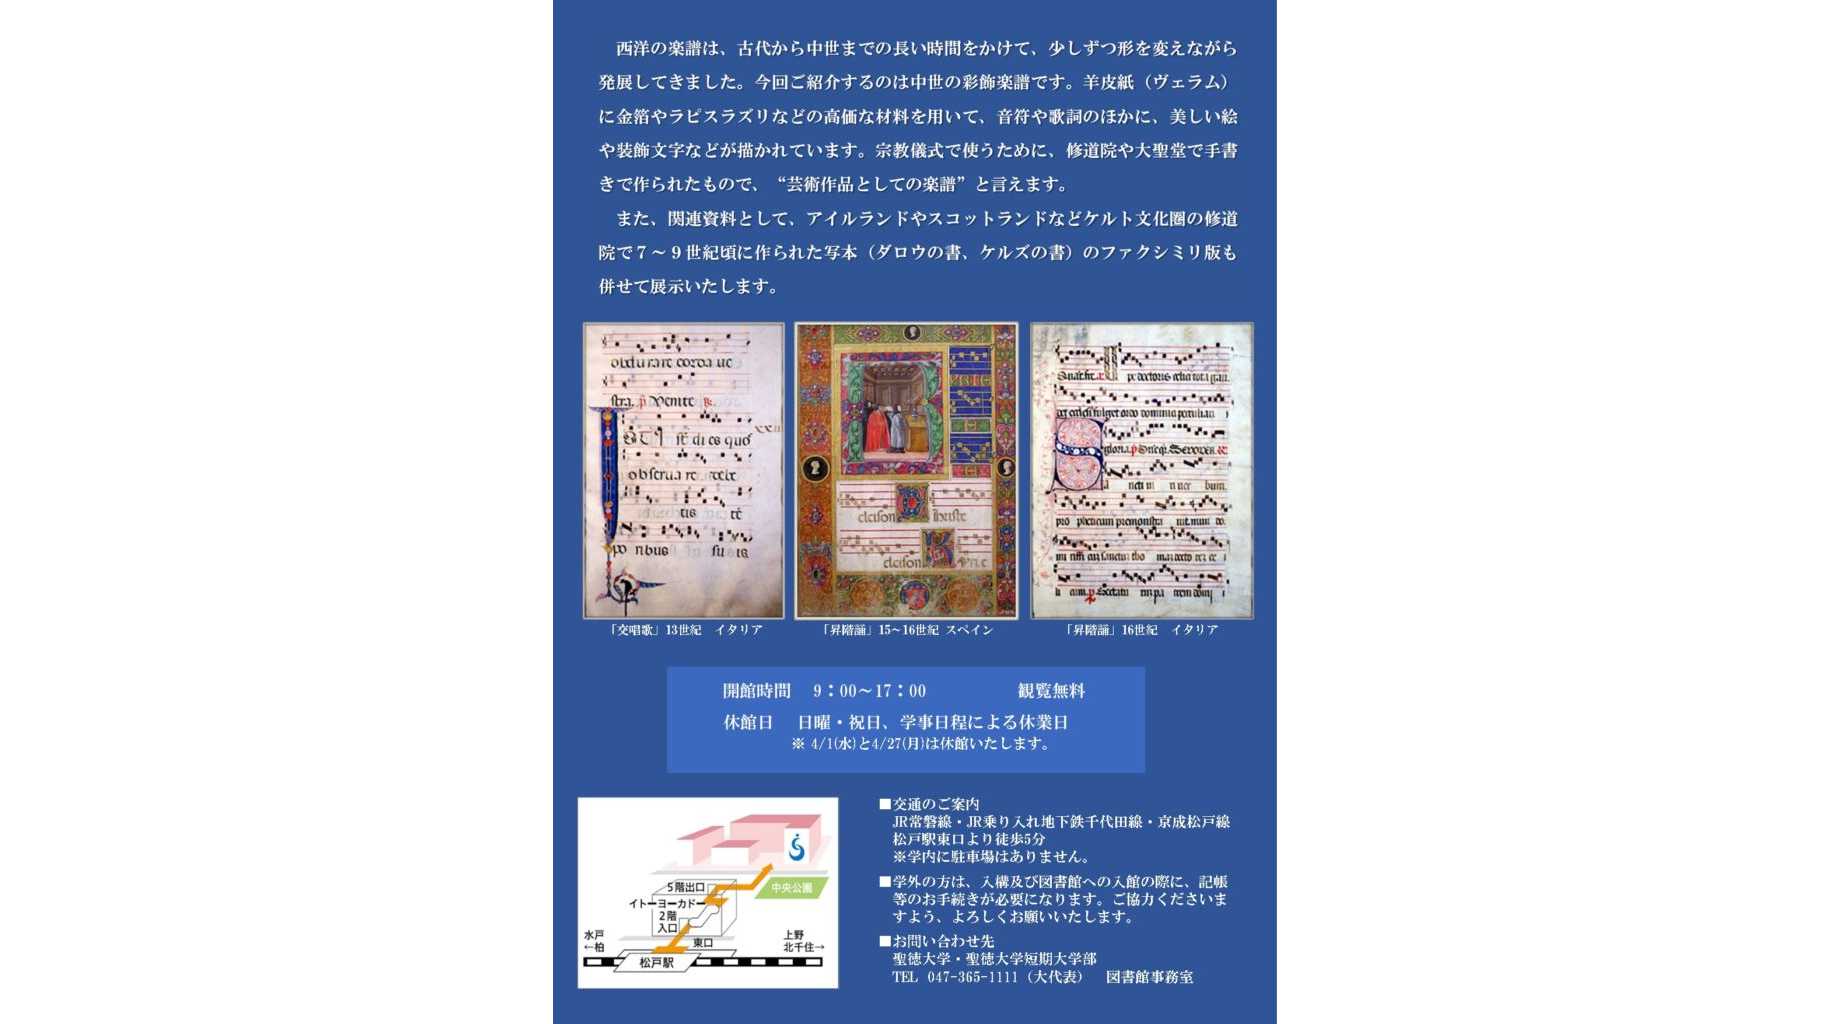 西洋の楽譜は、古代から中世までの長い時間をかけて、少しずつ形を変えながら
発展してきました。今回ご紹介するのは中世の彩飾楽譜です。羊皮紙（ヴェラム）
に金箔やラピスラズリなどの高価な材料を用いて、音符や歌詞のほかに、美しい絵
や装飾文字などが描かれています。宗教儀式で使うために、修道院や大聖堂で手書
きで作られたもので、“芸術作品としての楽譜”と言えます。
また、関連資料として、アイルランドやスコットランドなどケルト文化圏の修道
院で７～９世紀頃に作られた写本（ダロウの書、ケルズの書）のファクシミリ版も
併せて展示いたします。
「交唱歌」13世紀　イタリア
「昇階誦」15~16世紀 スペイン
「昇階誦」16世紀　イタリア
開館時間　9：00～17：00　観覧無料
休館日　日曜・祝日、学事日程による休業日
※ 4/1(水)と4/27(月)は休館いたします。
5階出口
中央公園
イトーヨーカドー
2階
入口
東口
水戸
←柏
上野
北千住→
松戸駅
■交通のご案内
JR常磐線・JR乗り入れ地下鉄千代田線・京成松戸線
松戸駅東口より徒歩5分
※学内に駐車場はありません。
■学外の方は、入構及び図書館への入館の際に、記帳
等のお手続きが必要になります。ご協力くださいま
すよう、よろしくお願いいたします。
■お問い合わせ先
聖徳大学・聖徳大学短期大学部
TEL 047-365-1111（大代表）　図書館事務室